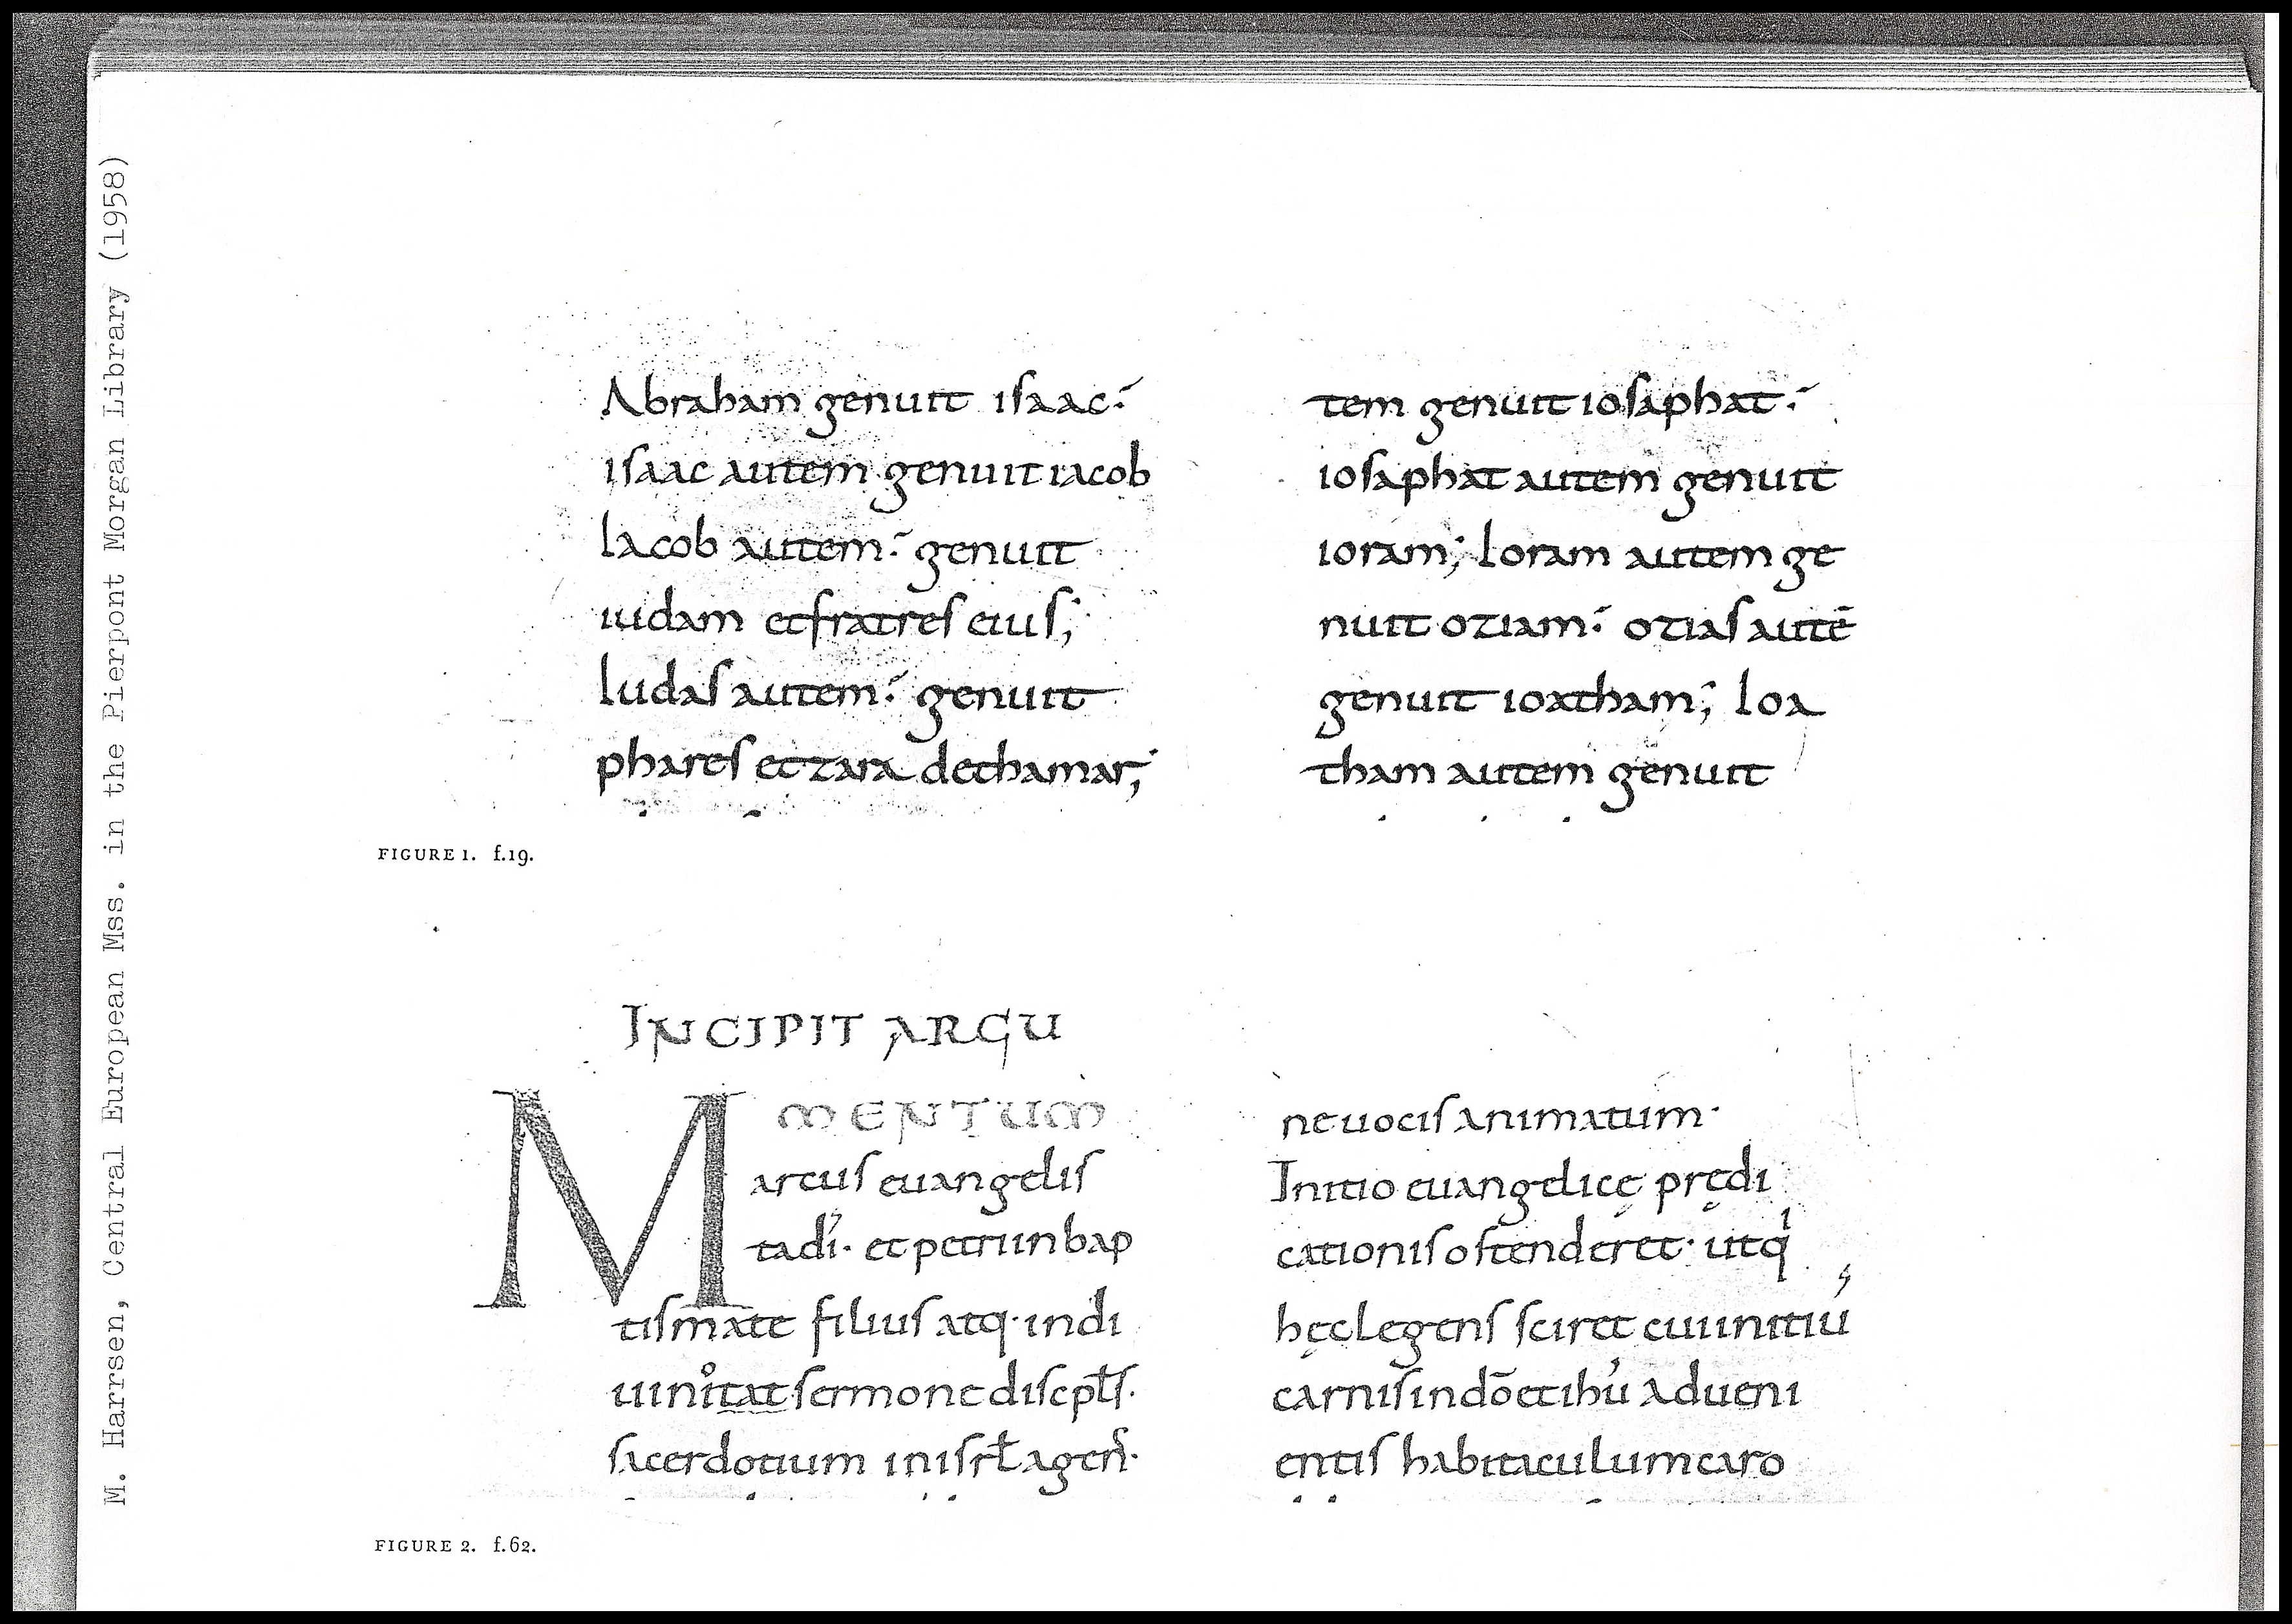 M. Harrsen, Central European Mss. in the Pierpont Morgan Library (1958)
Abraham genuit isaac:
isaac autem genuit iacob
Iacob autem: genuit
iudam et fratres eius;
Iudas autem: genuit
phares et zara de thamar;
tem genuit iosaphat:
iosaphat autem genuit
ioram; Ioram autem ge
nuit oziam: ozias autē
genuit ioatham; Ioa
tham autem genuit
FIGURE 1. f.19.
INCIPIT ARGU
MENTUM
Marcus euangelis
ta di· et petri in bap
tismate filius atq· indi
uino itat sermone discpłs·
sacerdotium in isrł agen̄·
ne uocis animatum·
Initio euangelicę prędi
cationis ostenderet· ut q
hęc legens sciret cui initiū
carnis in dō et ihū adueni
entis habitaculum caro
FIGURE 2. f.62.